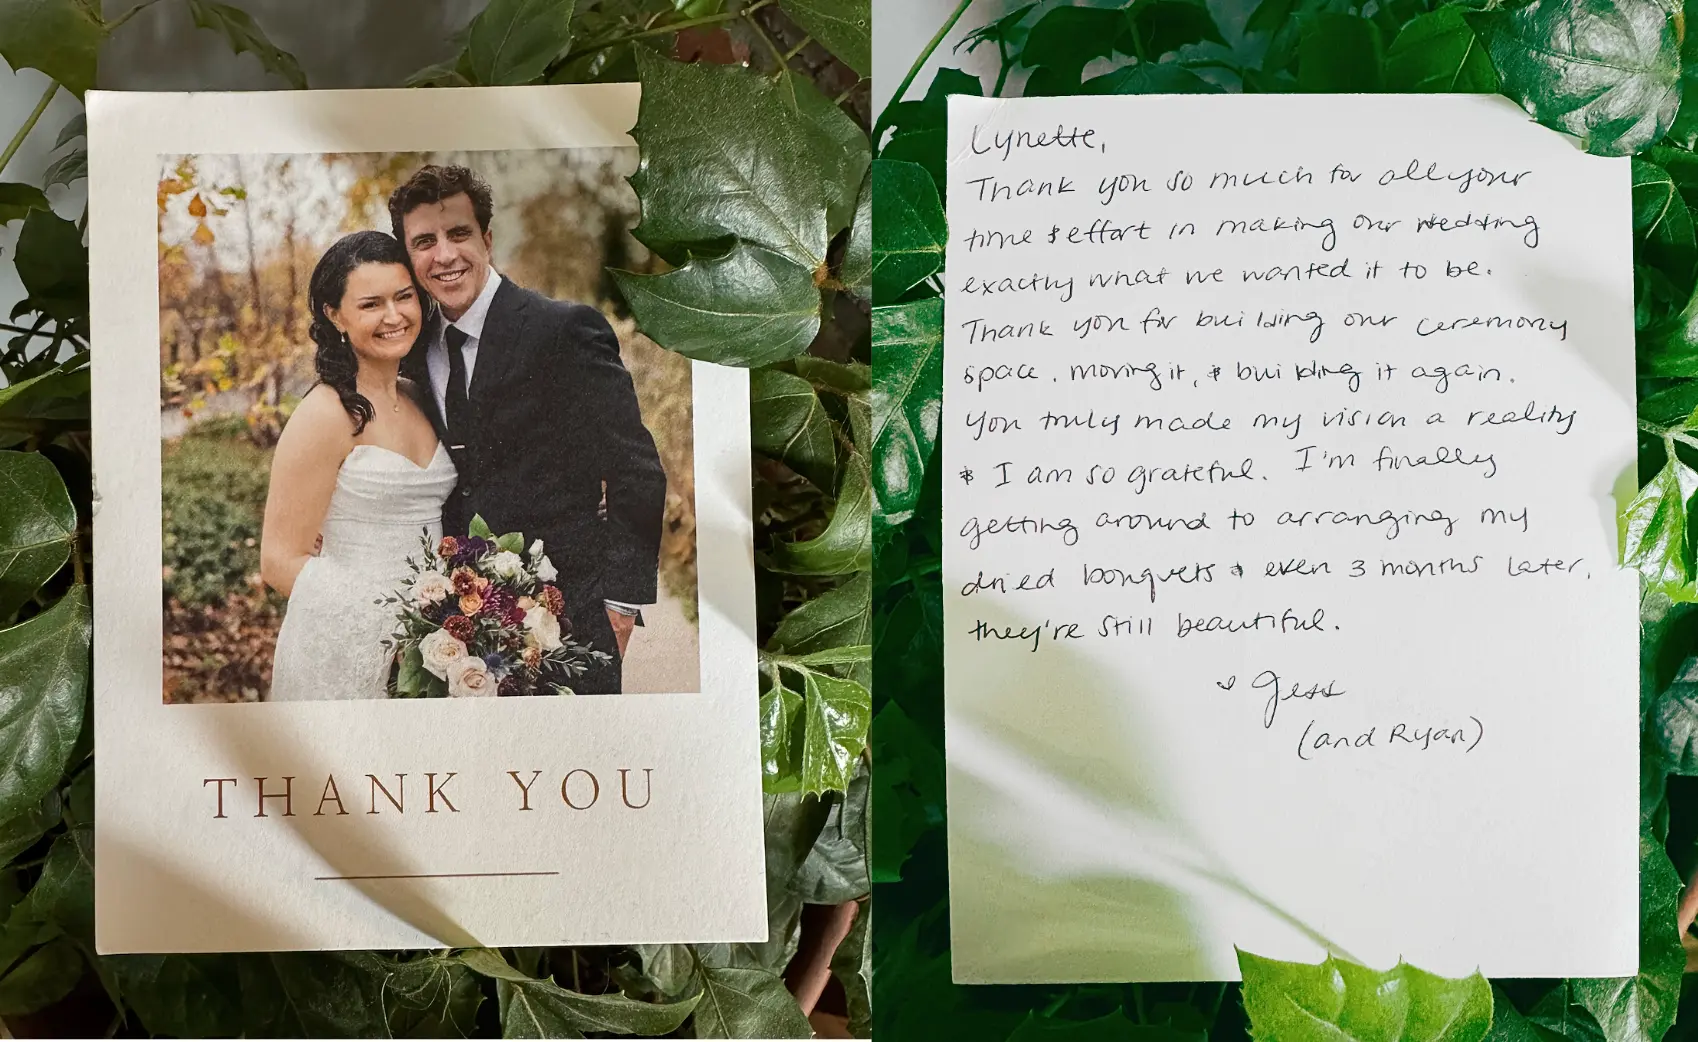 THANK YOU
Lynette,
Thank you so much for all your
time & effort in making our wedding
exactly what we wanted it to be.
Thank you for building our ceremony
space, moving it, & building it again.
You truly made my vision a reality
& I am so grateful. I'm finally
getting around to arranging my
dried bouquets & even 3 months later,
they're still beautiful.
♡ Jess
(and Ryan)